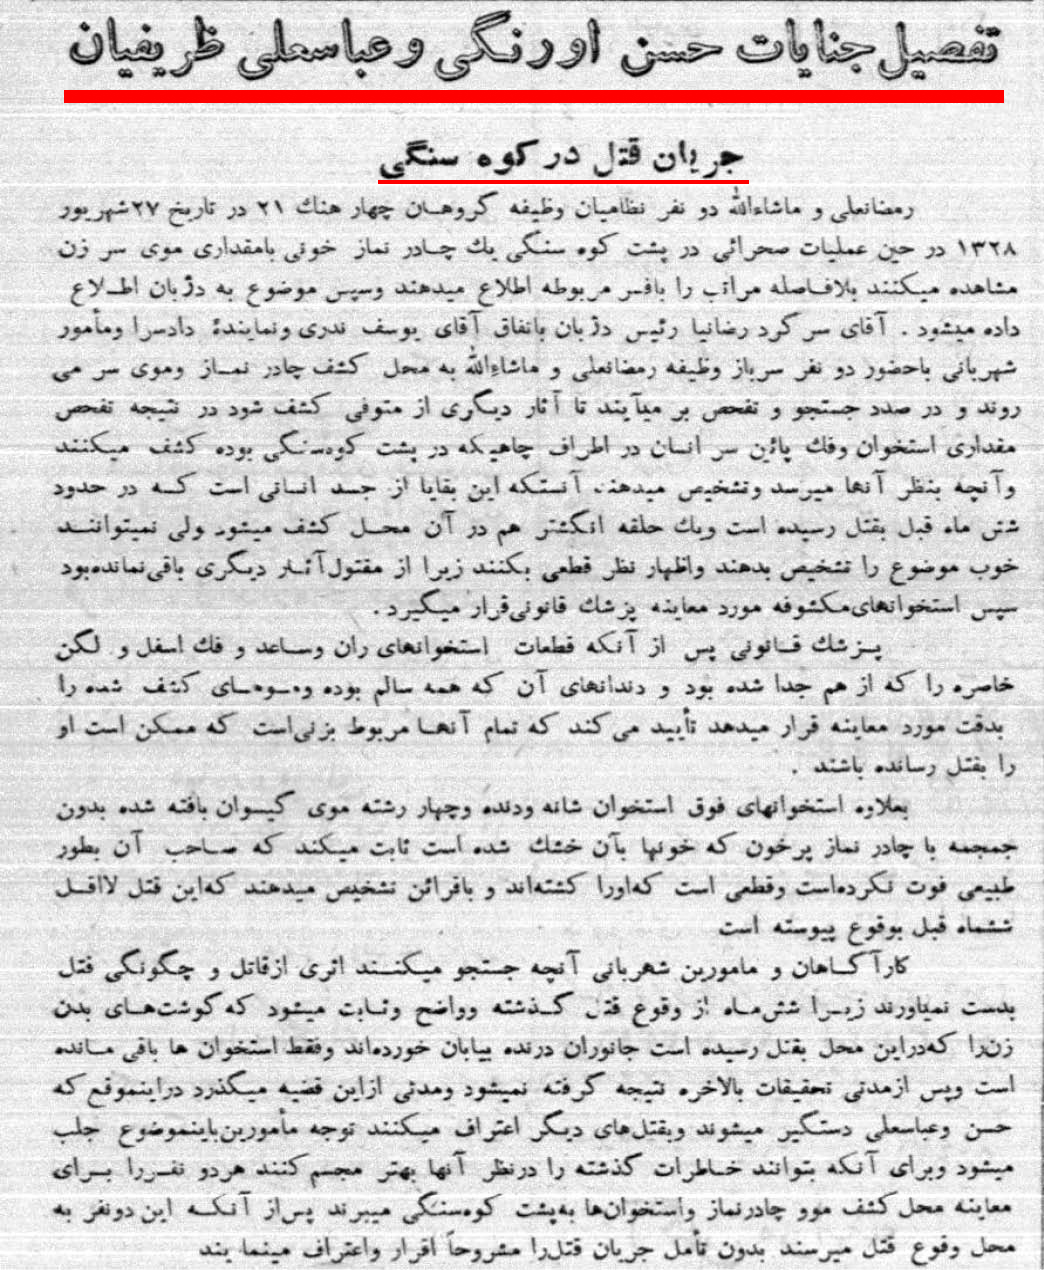 تفصیل جنایات حسن اورنگی و عباسعلی ظریفیان
جریان قتل در کوه سنگی
رمضانعلی و ماشاءالله دو نفر نظامیان وظیفه گروهان چهار هنك ۲۱ در تاریخ ۲۷شهریور
۱۳۲۸ در حین عملیات صحرائی در پشت کوه سنگی یك چادر نماز خونی بامقداری موی سر زن
مشاهده میکنند بلافاصله مراتب را بافسر مربوطه اطلاع میدهند وسپس موضوع به دژبان اطلاع
داده میشود . آقای سرگرد رضانیا رئیس دژبان باتفاق آقای یوسف ندری ونمایندهٔ دادسرا ومأمور
شهربانی باحضور دو نفر سرباز وظیفه رمضانعلی و ماشاءالله به محل کشف چادر نماز وموی سر می
روند و در صدد جستجو و تفحص بر میآیند تا آثار دیگری از متوفی کشف شود در نتیجه تفحص
مقداری استخوان وفك پائین سر انسان در اطراف چاهیکه در پشت کوه‌سنگی بوده کشف میکنند
وآنچه بنظر آنها میرسد وتشخیص میدهند آنستکه این بقایا از جسد انسانی است که در حدود
شش ماه قبل بقتل رسیده است ویك حلقه انگشتر هم در آن محل کشف میشود ولی نمیتوانند
خوب موضوع را تشخیص بدهند واظهار نظر قطعی بکنند زیرا از مقتول آثار دیگری باقی‌نمانده‌بود
سپس استخوانهای‌مکشوفه مورد معاینه پزشك قانونی‌قرار میگیرد .
پزشك قانونی پس از آنکه قطعات استخوانهای ران وساعد و فك اسفل و لگن
خاصره را که از هم جدا شده بود و دندانهای آن که همه سالم بوده وموهای کشف شده را
بدقت مورد معاینه قرار میدهد تأیید می‌کند که تمام آنها مربوط بزنی‌است که ممکن است او
را بقتل رسانده باشند .
بعلاوه استخوانهای فوق استخوان شانه ودنده وچهار رشته موی گیسوان بافته شده بدون
جمجمه با چادر نماز پرخون که خونها بآن خشك شده است ثابت میکند که صاحب آن بطور
طبیعی فوت نکرده‌است وقطعی است که‌اورا کشته‌اند و باقرائن تشخیص میدهند که‌این قتل لااقل
ششماه قبل بوقوع پیوسته است
کارآگاهان و مامورین شهربانی آنچه جستجو میکنند اثری ازقاتل و چگونگی قتل
بدست نمیاورند زیرا شش‌ماه از وقوع قتل گذشته وواضح وثابت میشود که‌گوشت‌های بدن
زن‌را که‌دراین محل بقتل رسیده است جانوران درنده بیابان خورده‌اند وفقط استخوان ها باقی مانده
است وپس ازمدتی تحقیقات بالاخره نتیجه گرفته نمیشود ومدتی ازاین قضیه میگذرد دراینموقع که
حسن وعباسعلی دستگیر میشوند وبقتل‌های دیگر اعتراف میکنند توجه مأمورین‌باینموضوع جلب
میشود وبرای آنکه بتوانند خاطرات گذشته را درنظر آنها بهتر مجسم کنند هردو نفررا برای
معاینه محل کشف موو چادرنماز واستخوان‌ها به‌پشت کوه‌سنگی میبرند پس‌از آنکه این دونفر به
محل وقوع قتل میرسند بدون تأمل جریان قتل‌را مشروحاً اقرار واعتراف مینما یند